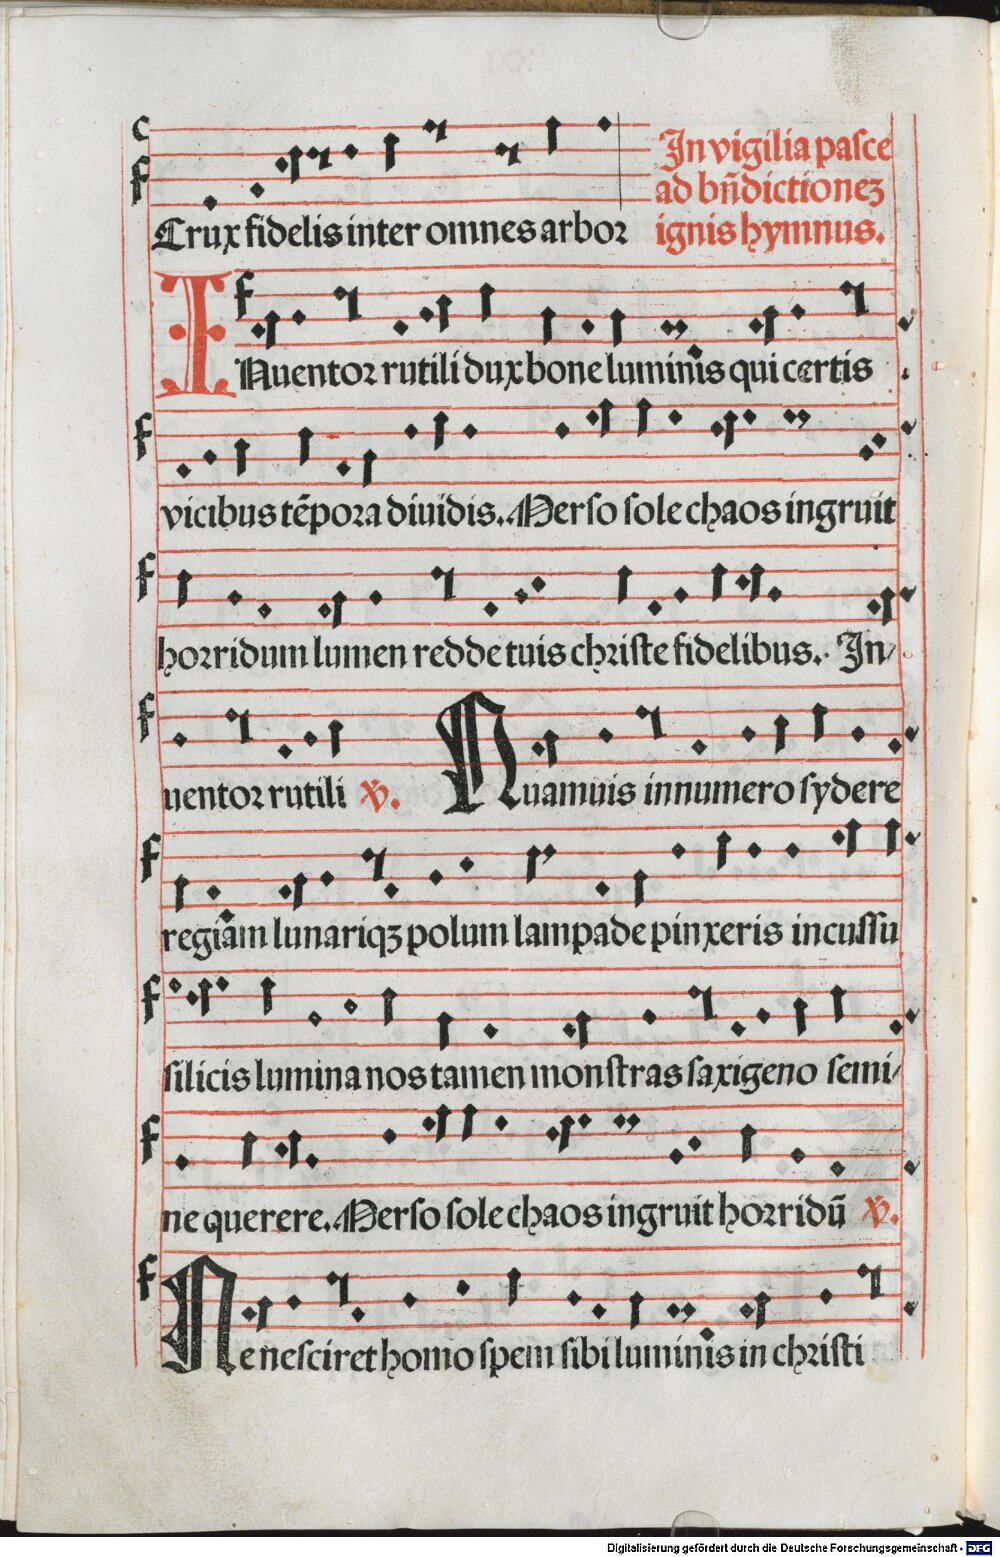 Crux fidelis inter omnes arbor
In vigilia pasce
ad bñdictionez
ignis hymnus.
INuentor rutili dux bone luminis qui certis
vicibus tẽpora diuidis. Merso sole chaos ingruit
horridum lumen redde tuis christe fidelibus. In/
uentor rutili ꝟ. Quamuis innumero sydere
regiam lunariqꝫ polum lampade pinxeris incussu
silicis lumina nos tamen monstras saxigeno semi/
ne querere. Merso sole chaos ingruit horridũ ꝟ.
Ne nesciret homo spem sibi luminis in christi
Digitalisierung gefördert durch die Deutsche Forschungsgemeinschaft - DFG